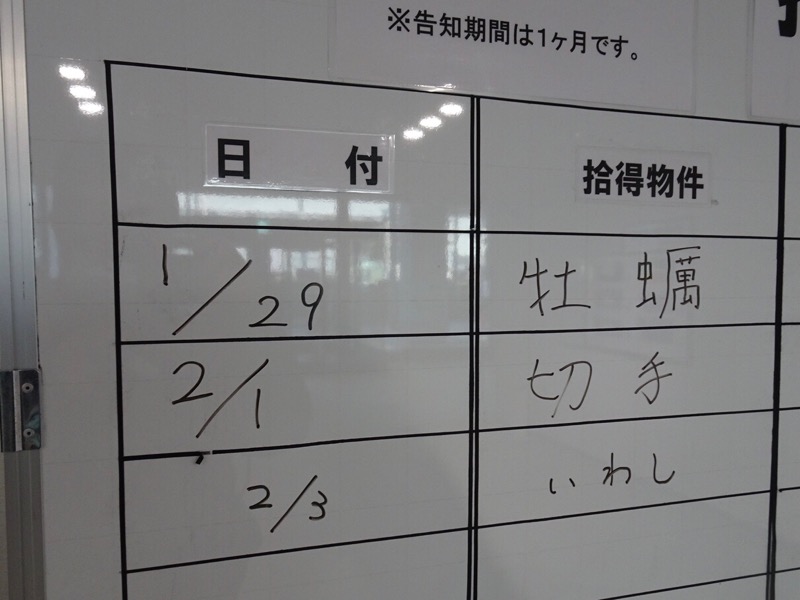 ※告知期間は1ヶ月です。
日 付 拾得物件
1/29 牡蠣
2/1 切手
2/3 いわし